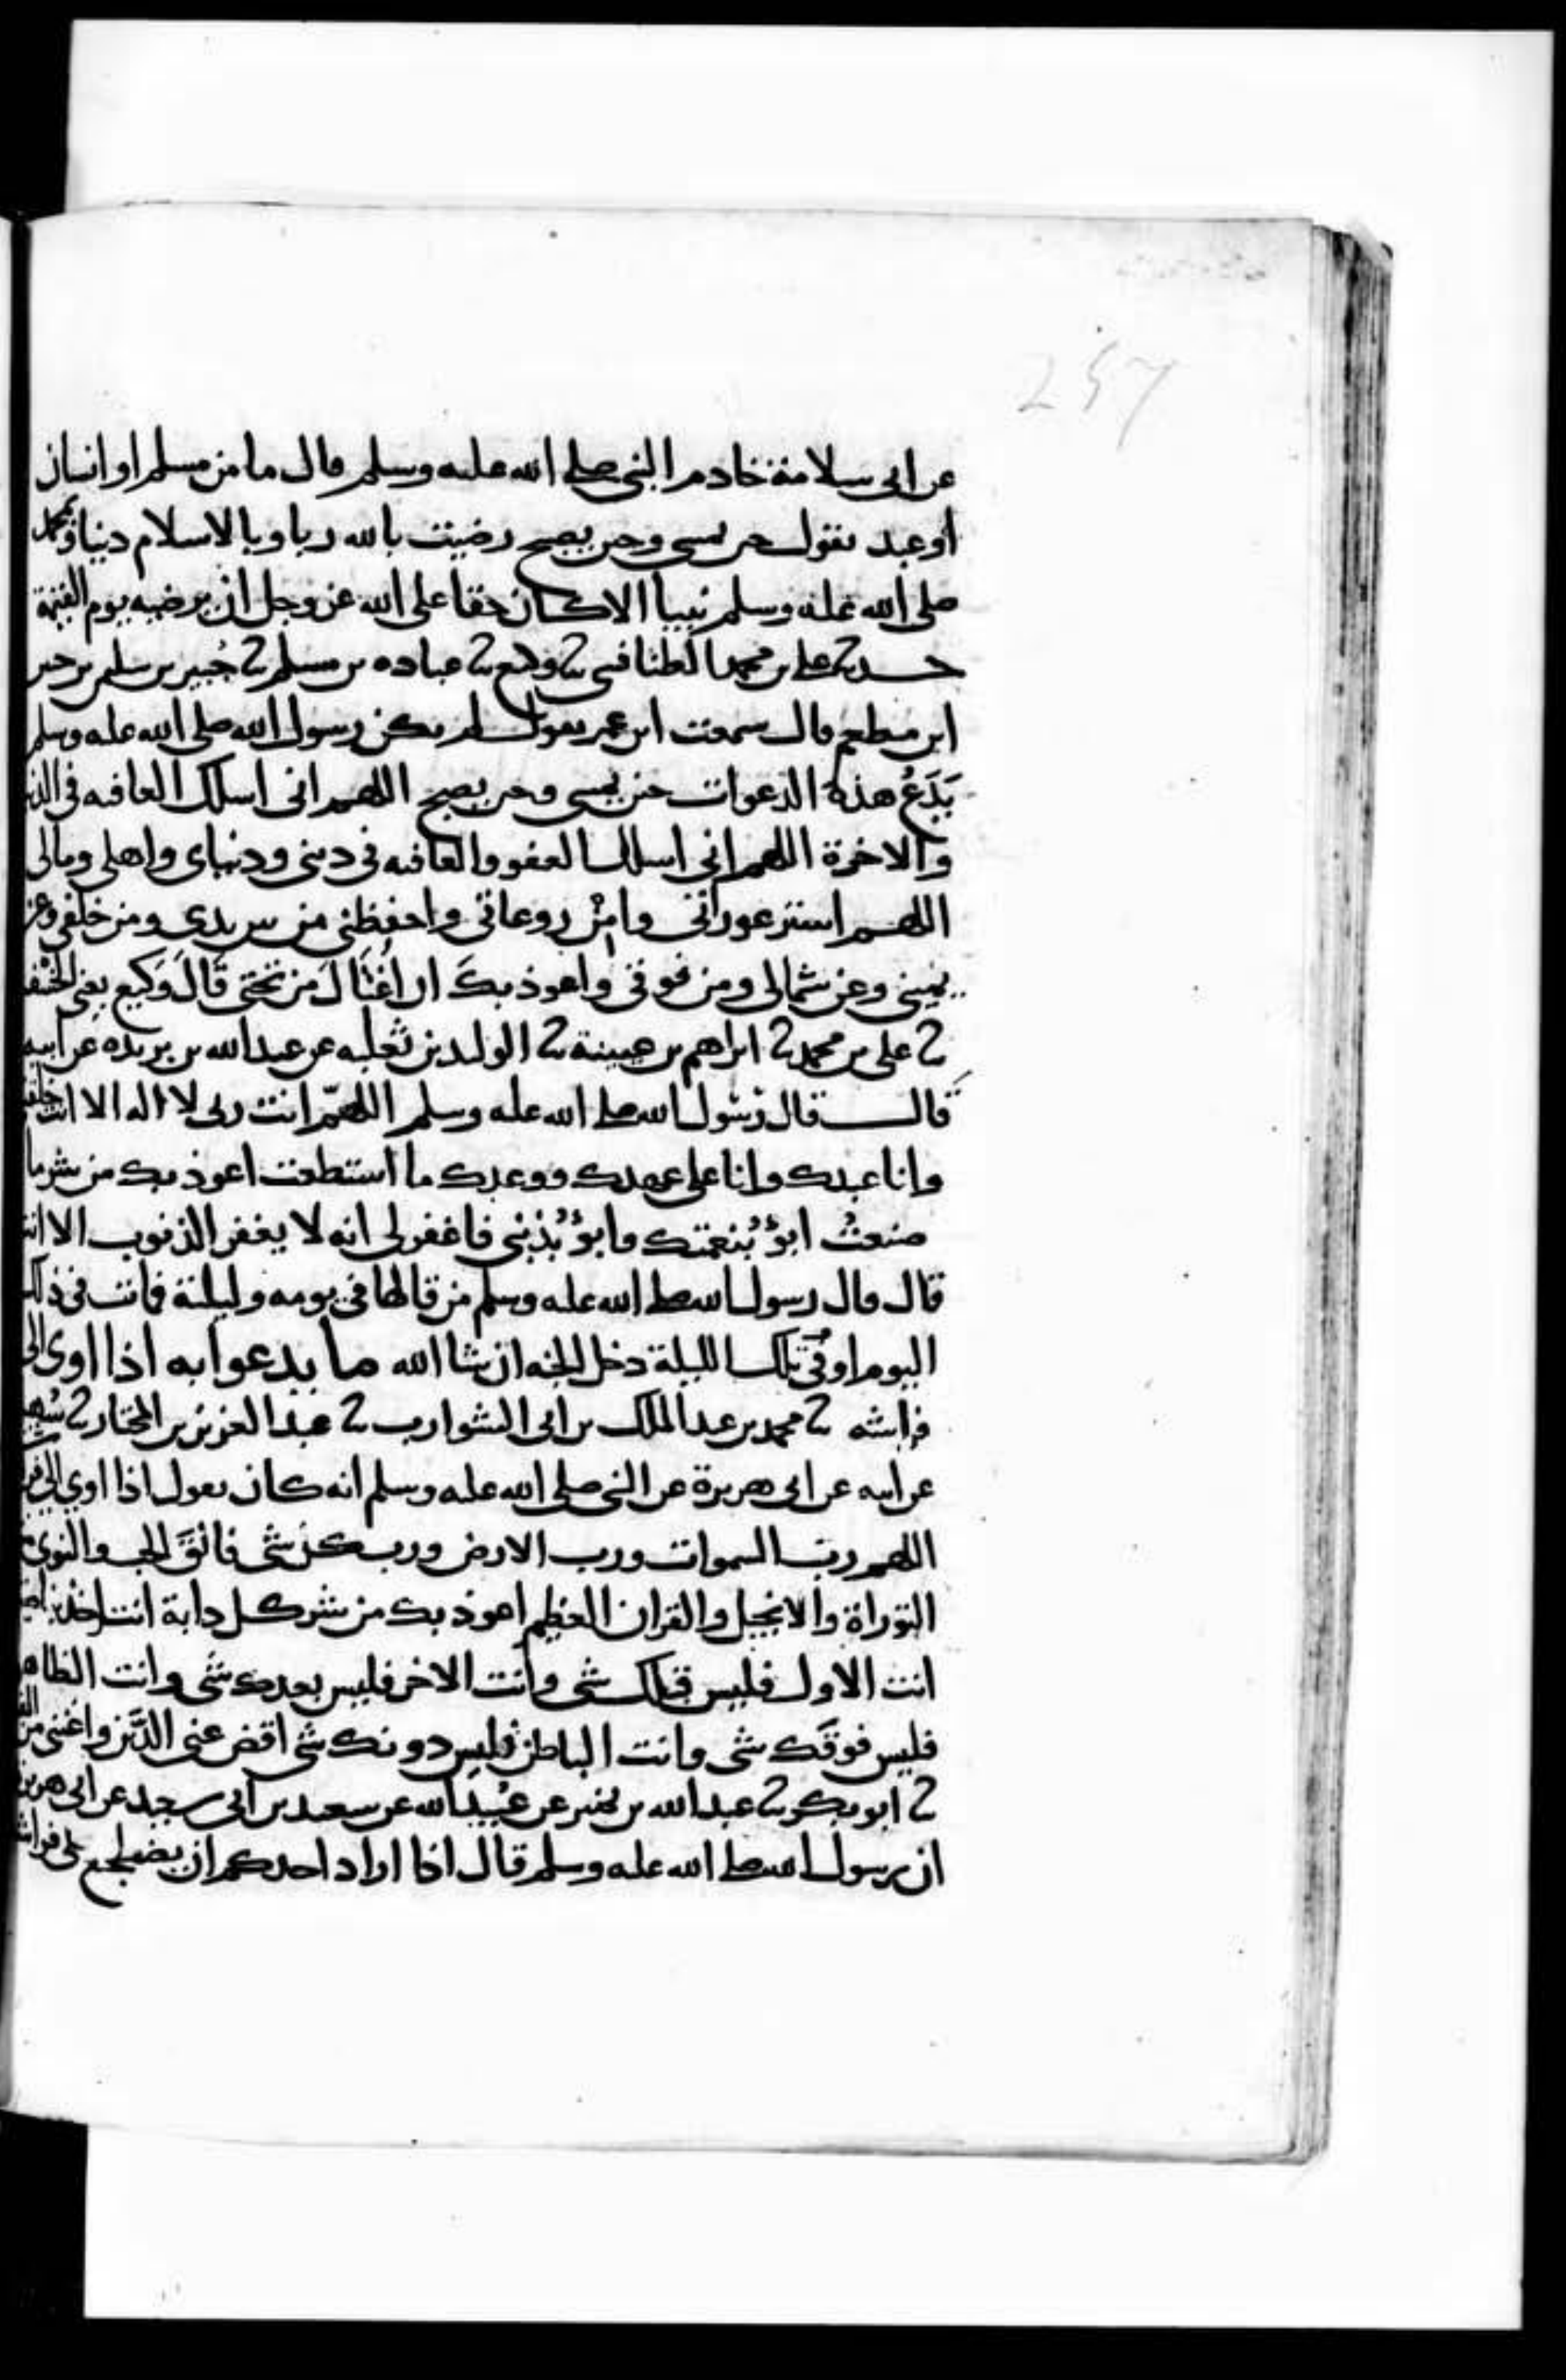 257
عن ابى سلامة خادم النبى صلى الله عليه وسلم قال ما من مسلم او انسان
او عبد يقول حين يمسى وحين يصبح رضيت بالله ربا وبالاسلام دينا وبمحمد
صلى الله عليه وسلم نبيا الا كان حقا على الله عز وجل ان يرضيه يوم القيمة
حدثنا على بن محمد الطنافسى ثنا وكيع ثنا عباده بن مسلم ثنا جُبير بن سلم بن جبير
ابن مطعم قال سمعت ابن عمر يقول لم يكن رسول الله صلى الله عليه وسلم
يَدَعُ هذه الدعوات حين يمسى وحين يصبح اللهم انى اسلك العافيه فى الدنيا
والاخرة اللهم انى اسلك العفو والعافيه فى دينى ودنياى واهلى ومالى
اللهم استر عوراتى وامِنْ روعاتى واحفظنى من بين يدى ومن خلفى وعن
يمينى وعن شمالى ومن فوقى واعوذ بكَ ان اُغتَالَ من تحتى قَالَ وَكيع يعنى الخسف
ثنا على بن محمد ثنا ابراهيم بن عيينة ثنا الوليد بن ثعلبه عن عبد الله بن بريده عن ابيه
قال قال رسول الله صلى الله عليه وسلم اللهمّ انت ربى لا اله الا انت خلقتنى
وانا عبدك وانا على عهدك ووعدك ما استطعت اعوذ بك من شر ما
صنعتُ ابوُ بنعمتك وابوُ بذنبى فاغفر لى انه لا يغفر الذنوب الا انت
قال قال رسول الله صلى الله عليه وسلم من قالها فى يومه وليلته فمات فى ذلك
اليوم او فى تلك الليلة دخل الجنه ان شا الله ما يدعوا به اذا اوى الى
فراشه ثنا محمد بن عبد الملك بن ابى الشوارب ثنا عبد العزيز بن المختار ثنا سُهيل
عن ابيه عن ابى هريرة عن النبى صلى الله عليه وسلم انه كان يقول اذا اوى الى
اللهم رب السموات ورب الارض ورب كل شى فالقَ الحب والنوى
التوراة والانجيل والقران العظيم اعوذ بك من شر كل دابة انت اخذ
انت الاول فليس قبلك شى وانت الاخر فليس بعدك شى وانت الظاهر
فليس فوقَك شى وانت الباطن فليس دونك شى اقض عنى الدَّين واغننى من
ثنا ابو بكر ثنا عبد الله بن نمير عن عُبيد الله عن سعيد بن ابى سعيد عن ابى هريرة
ان رسول الله صلى الله عليه وسلم قال اذا اراد احدكم ان يضطجع على فراشه